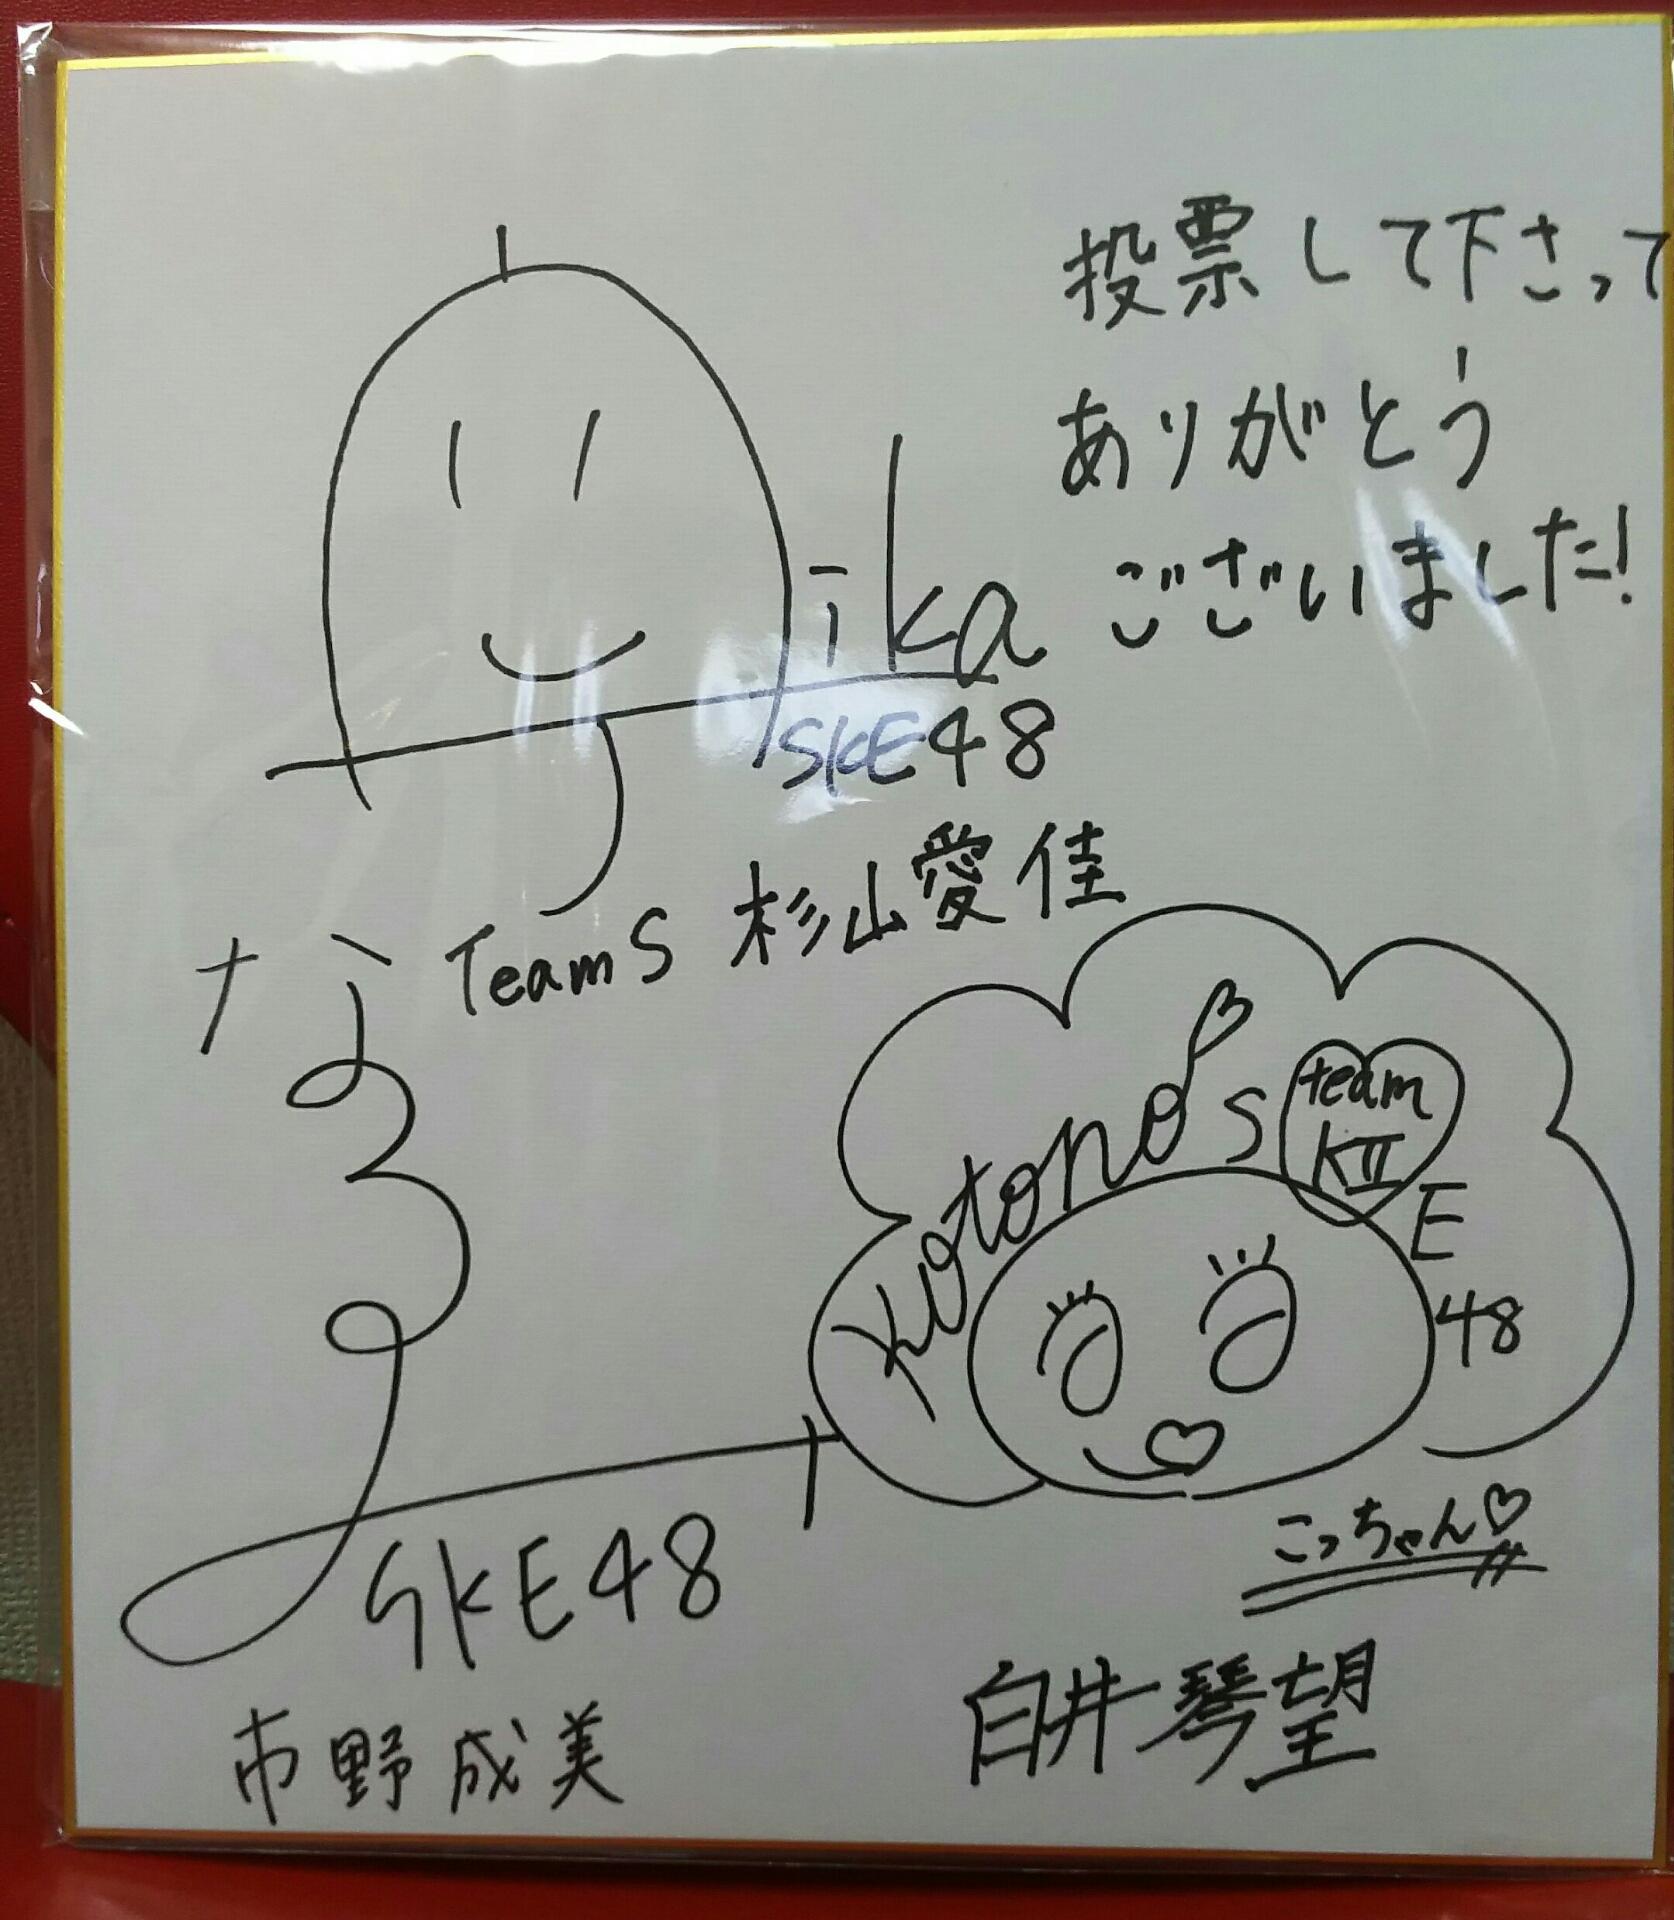 投票して下さって
ありがとう
ございました!
ika
SKE48
TeamS 杉山愛佳
なる
SKE48
市野成美
kotono
S
team
KII
E
48
こっちゃん♡
白井琴望